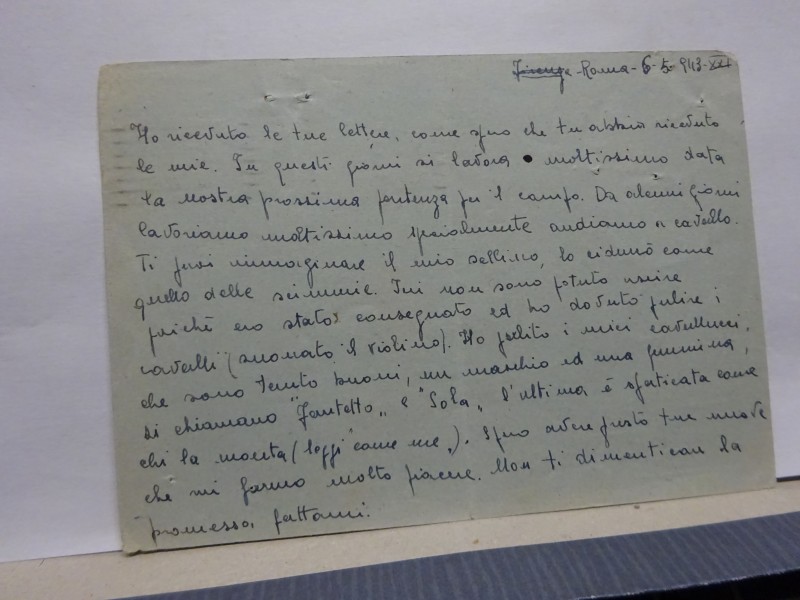 Firenze - Roma - 6-5-943-XXI
Ho ricevuto le tue lettere, come spero che tu abbia ricevuto
le mie. In questi giorni si lavora moltissimo data
la nostra prossima partenza per il campo. Da alcuni giorni
lavoriamo moltissimo specialmente andiamo a cavallo.
Ti puoi immaginare il mio sellino, lo ridurrò come
quello delle scimmie. Ieri non sono potuto uscire
poichè ero stato consegnato ed ho dovuto pulire i
cavalli (suonato il violino). Ho pulito i miei cavallucci,
che sono tanto buoni, un maschio ed una femmina,
si chiamano "Fantetto" e "Sola", l'ultima è sfaticata come
chi la monta (leggi "come me"). Spero avere presto tue nuove
che mi fanno molto piacere. Non ti dimenticare la
promessa fattami.